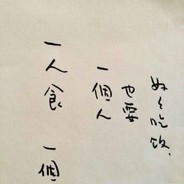 好々吃饭、
也要
一個人
一人食 一個